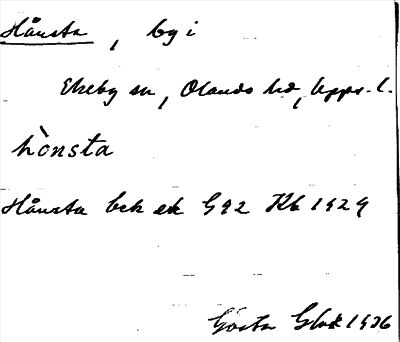 Hånsta, by i
Ekeby sn, Olands hd, Upps. l.
hònsta
Hånsta bck ek G92 Kb 1929
Gösta 1936